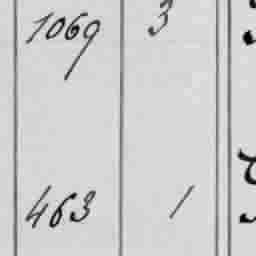 1069 3
463 1